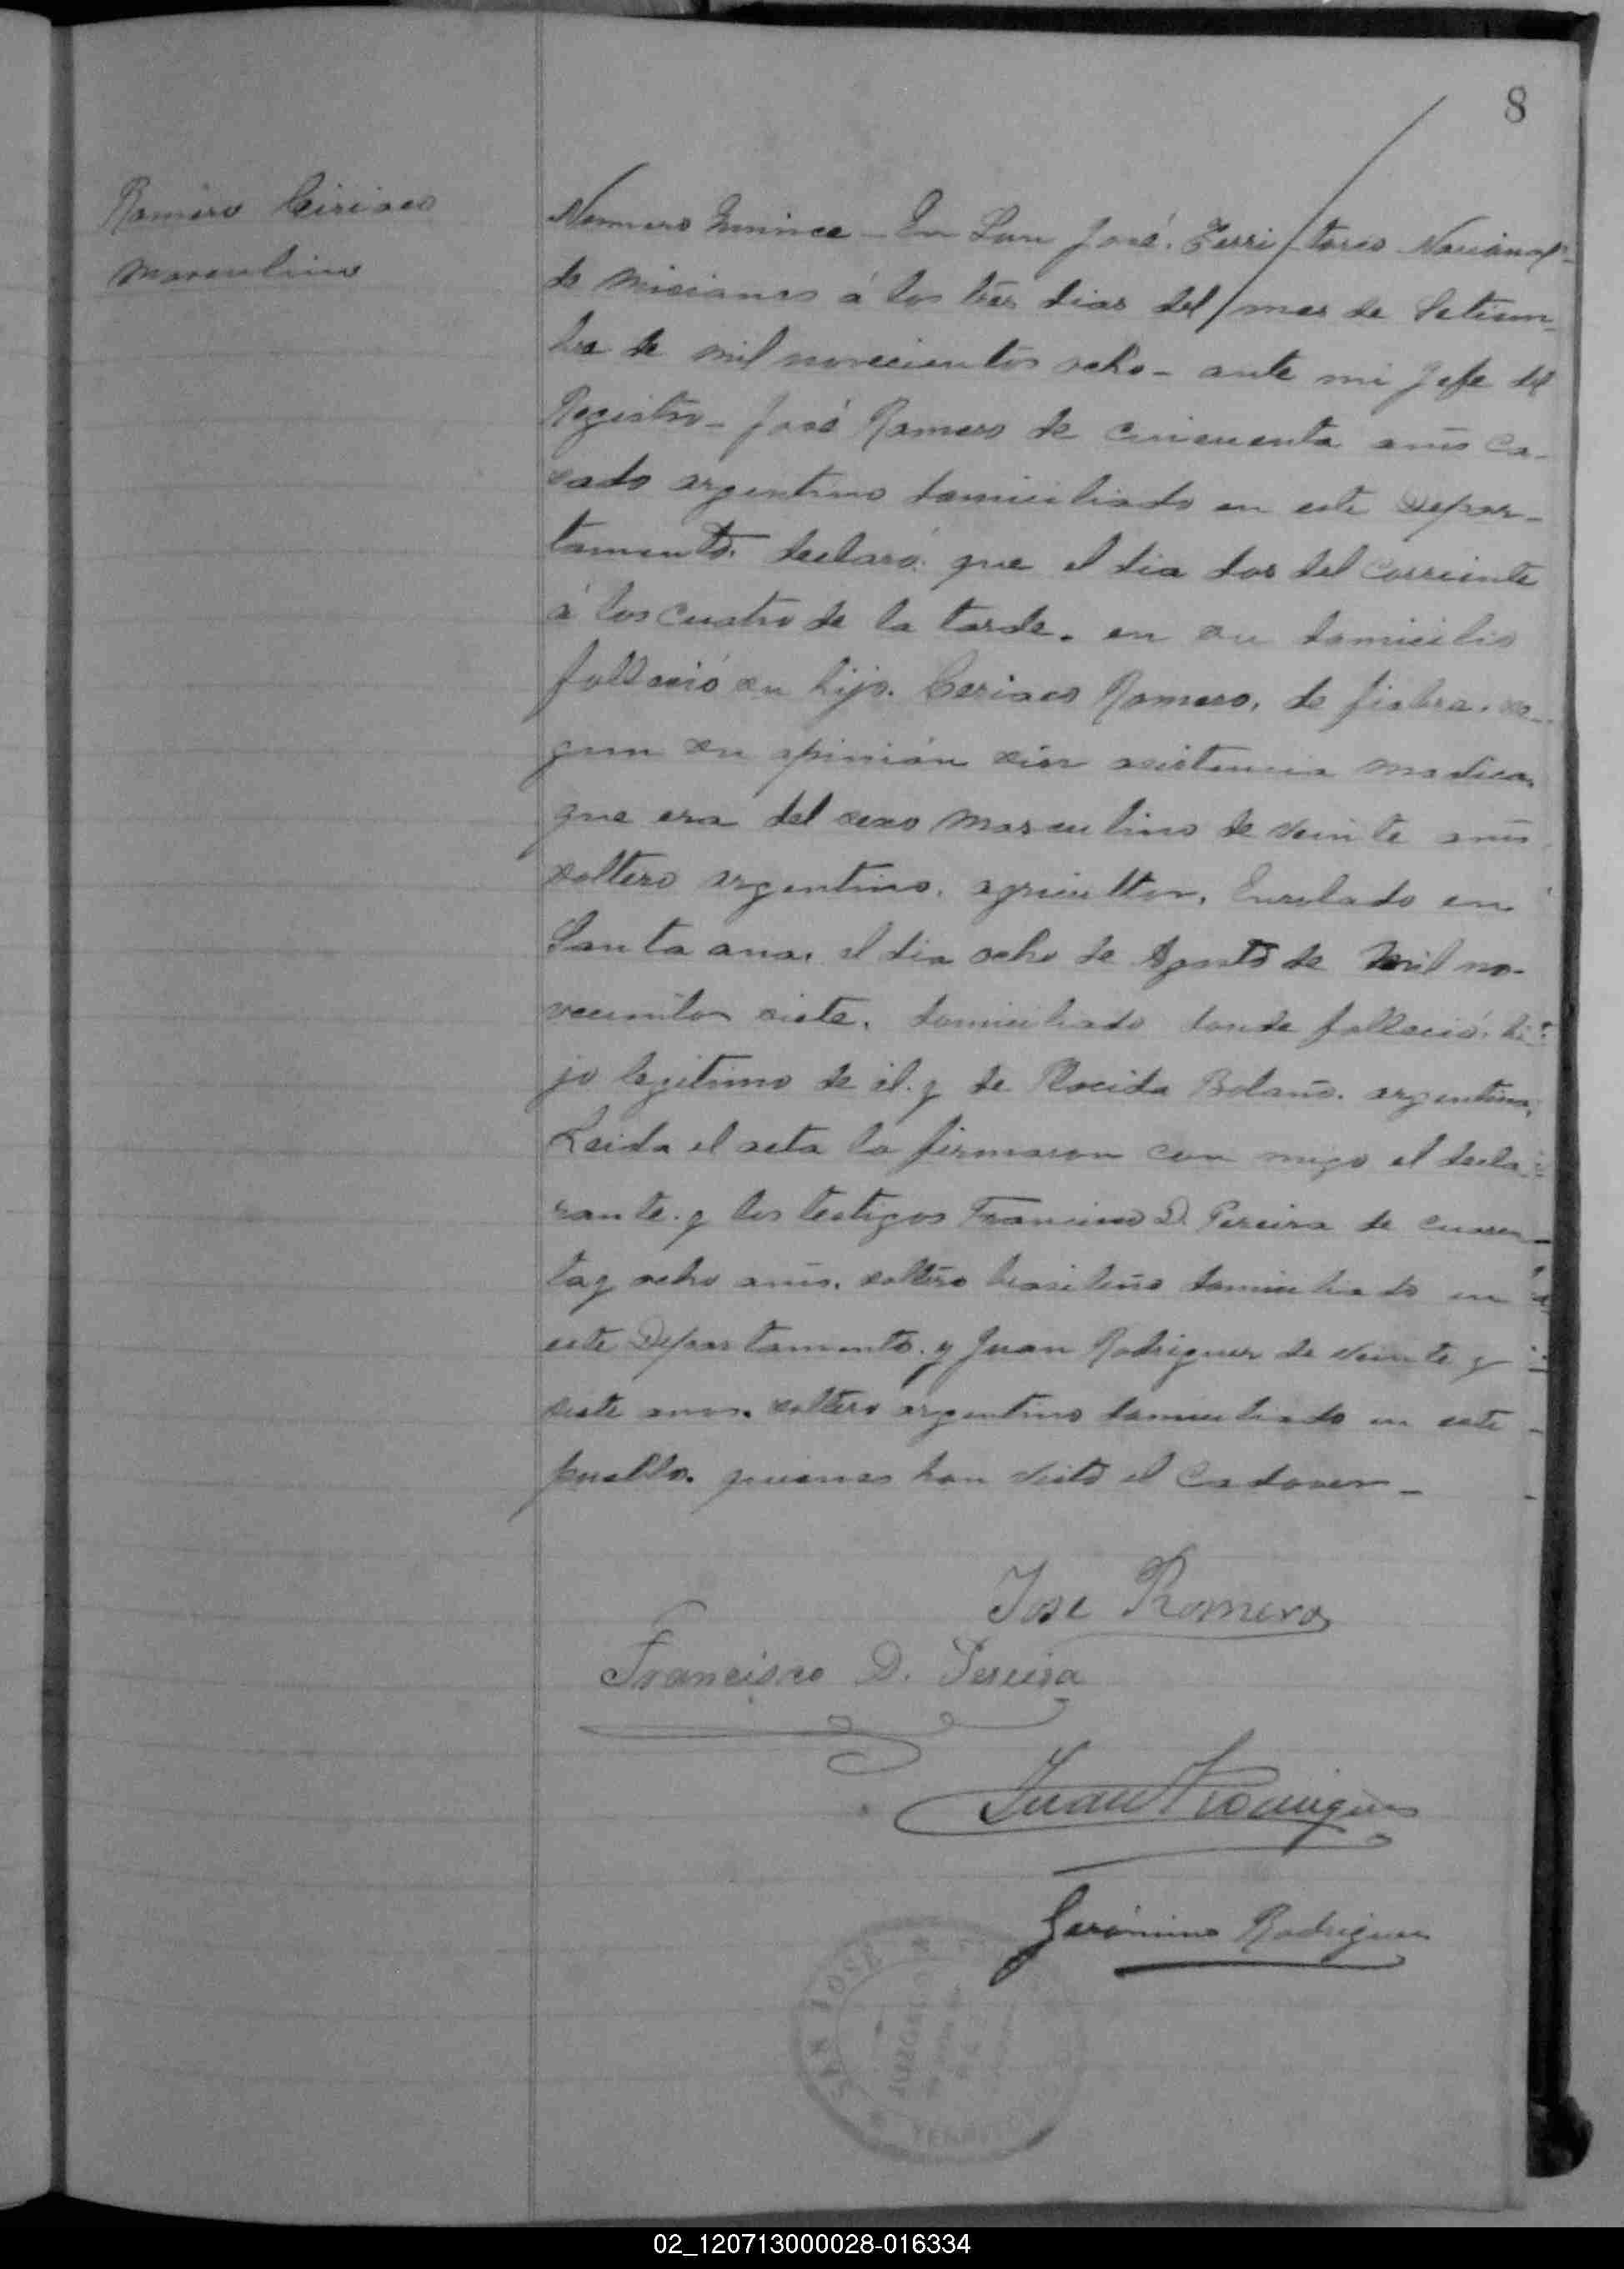 8
Romero Ciriaco
masculino
Numero Quince - En San José. Territorio Nacional
de Misiones á los tres dias del mes de Setiem-
bre de mil novecientos ocho - ante mi Jefe del
Registro - José Romero de cincuenta años ca-
sado argentino domiciliado en este Depar-
tamento. declaró: que el dia dos del corriente
á las cuatro de la tarde. en su domicilio
falleció su hijo. Ceriaco Romero, de fiebre. se-
gun su opinión sin asistencia medica.
que era del sexo masculino de veinte años
soltero argentino. agricultor. Enrolado en
Santa ana. el dia ocho de Agosto de mil no-
vecientos siete. domiciliado donde falleció. hi-
jo legitimo de él. y de Placida Bolaño. argentina.
Leida el acta la firmaron con migo el decla-
rante. y los testigos Francisco D. Pereira de cuaren-
ta y ocho años. soltero brasileño domiciliado en
este Departamento. y Juan Rodriguez de veinte y
siete anos. soltero argentino domiciliado en este
pueblo. quienes han visto el Cadaver -
Jose Romero
Francisco D. Pereira
Juan Rodriguez
Gerónimo Rodriguez
SAN JOSE
JUZGADO
TERRITORIO
02_120713000028-016334